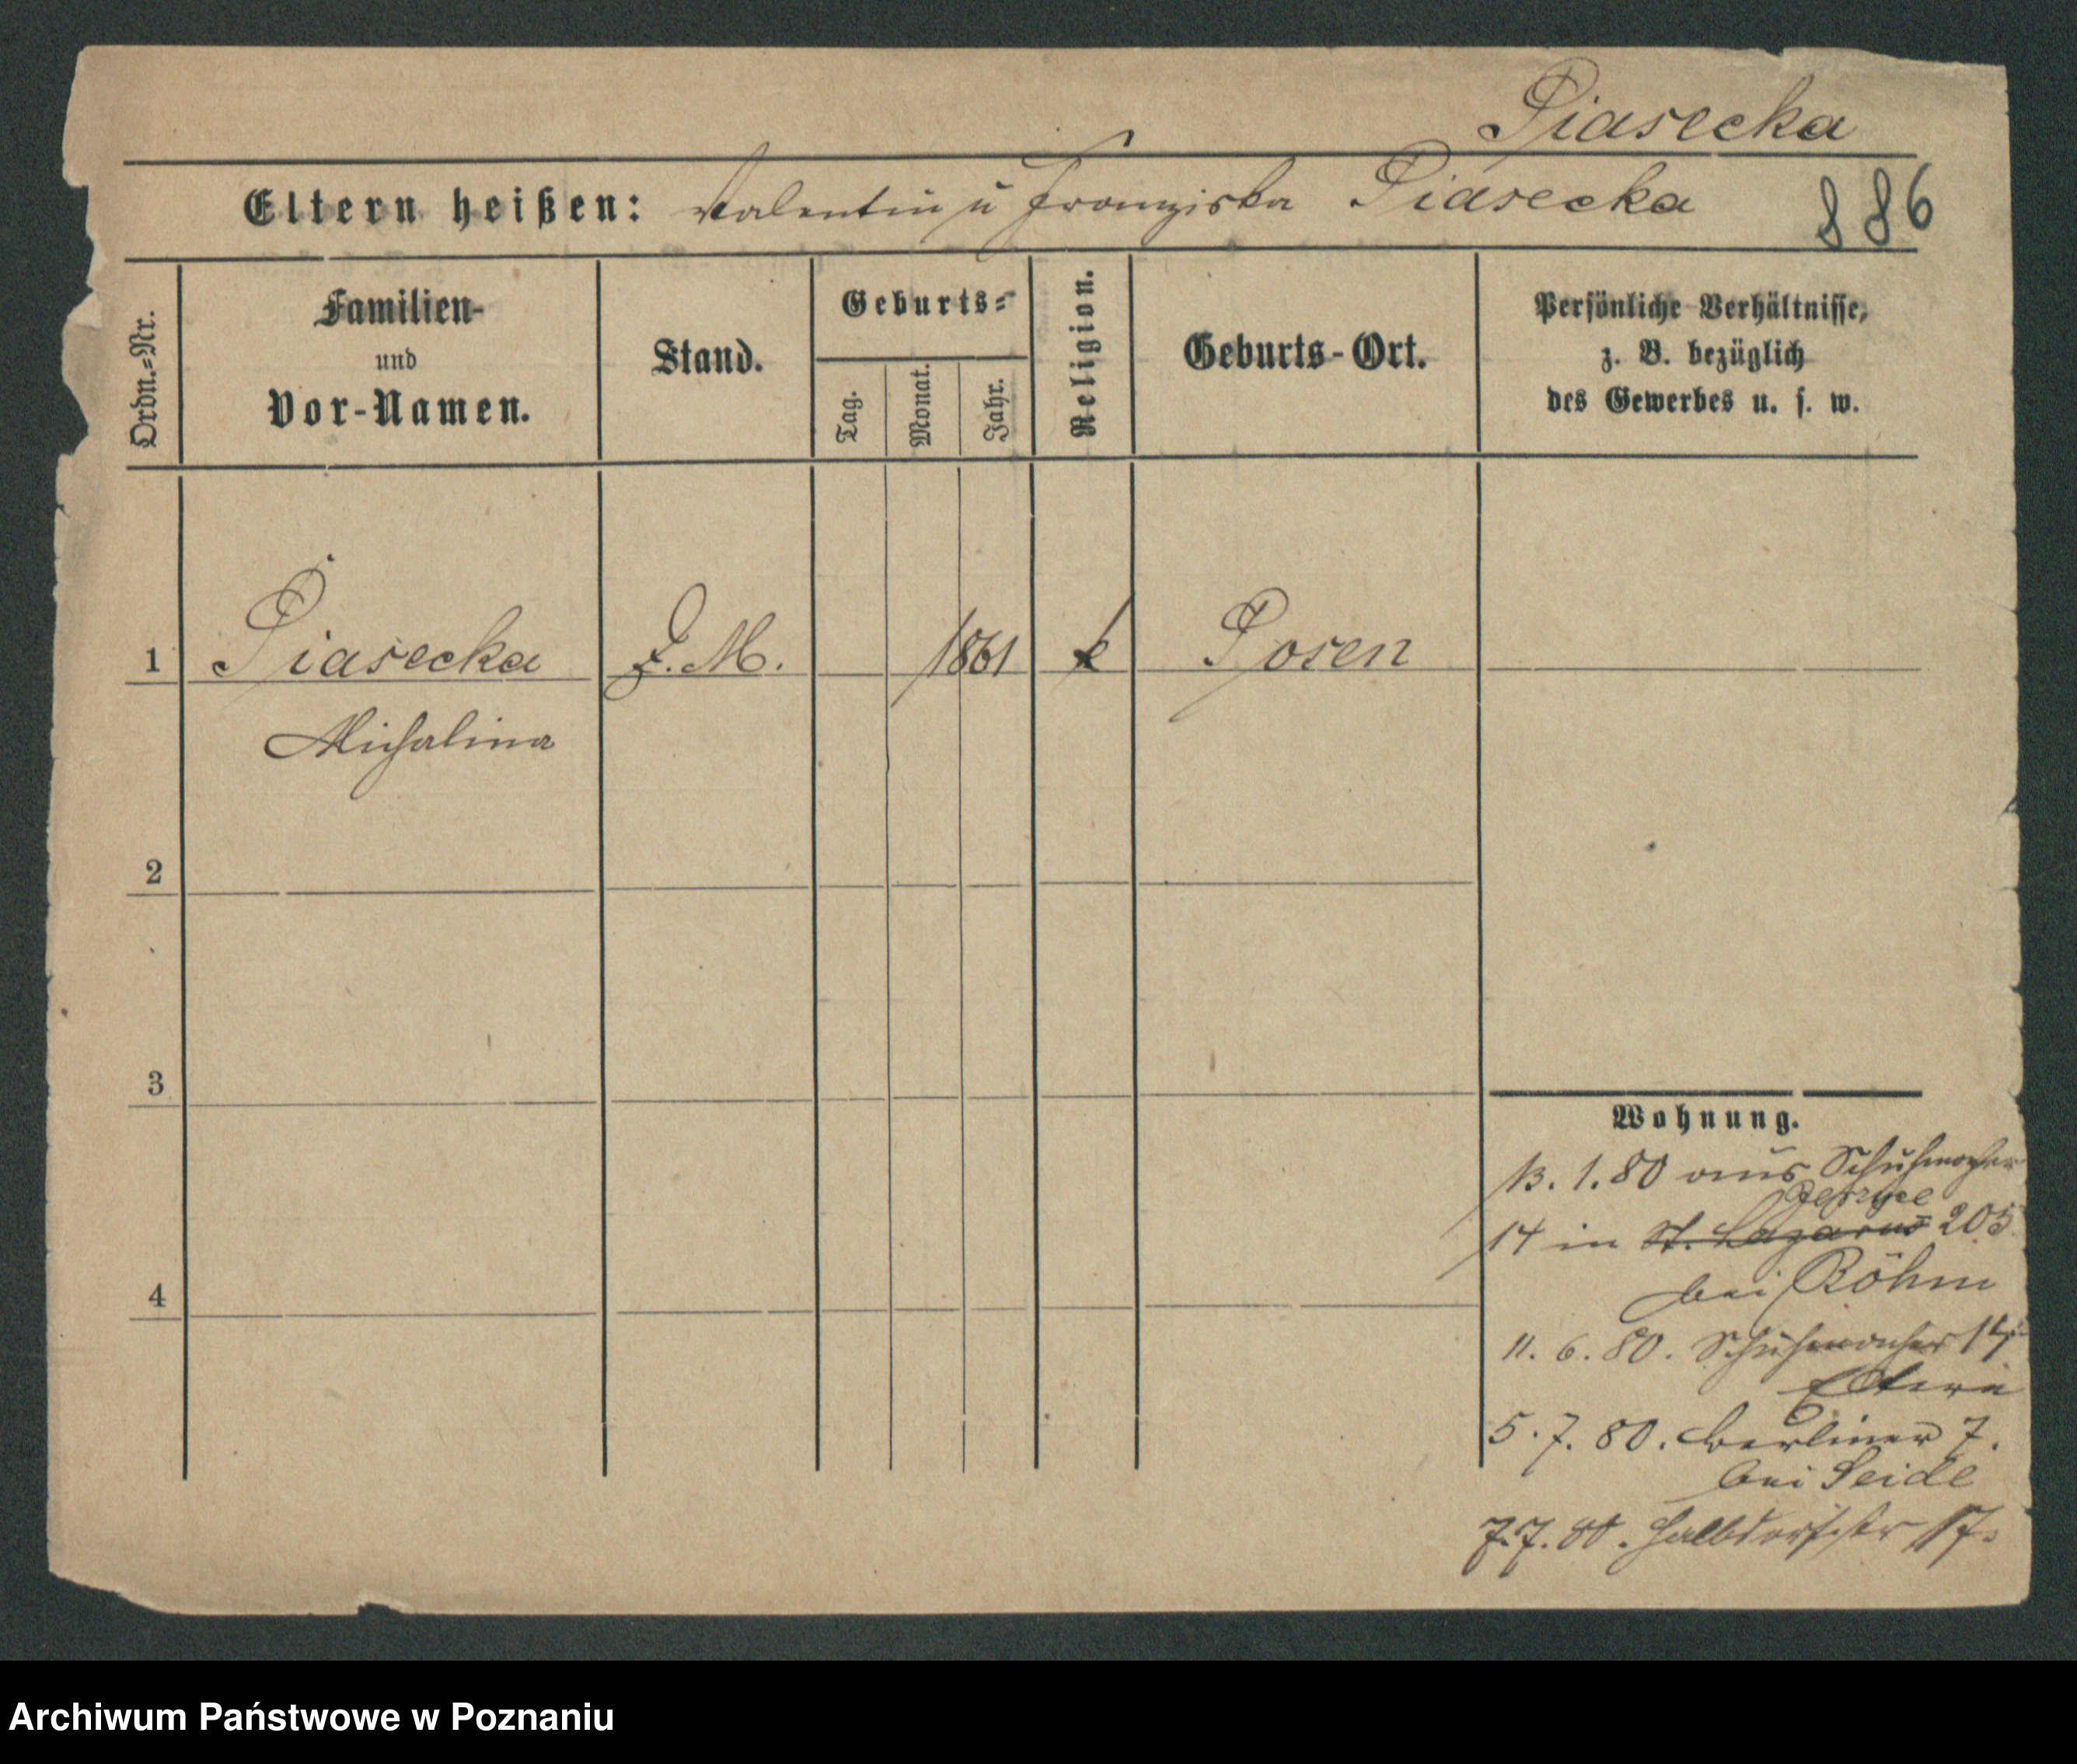 Piasecka
Eltern heißen: Valentin u Franziska Piasecka 886
Ordn.=Nr.
Familien-
und
Vor-Namen.
Stand.
Geburts=
Tag.
Monat.
Jahr.
Religion.
Geburts-Ort.
Persönliche Verhältnisse,
z. B. bezüglich
des Gewerbes u. s. w.
1 Piasecka M. 1861 k Posen
Michalina
2
3
4
Wohnung.
13. 1. 80 aus Schuhmacher
14 in St. Lazarus 205
bei Röhm
11. 6. 80. Schuhmacher 14
Eltern
5. 7. 80. Berliner 7.
bei Seidl
7. 7. 80. Halbdorfstr 17.
Archiwum Państwowe w Poznaniu